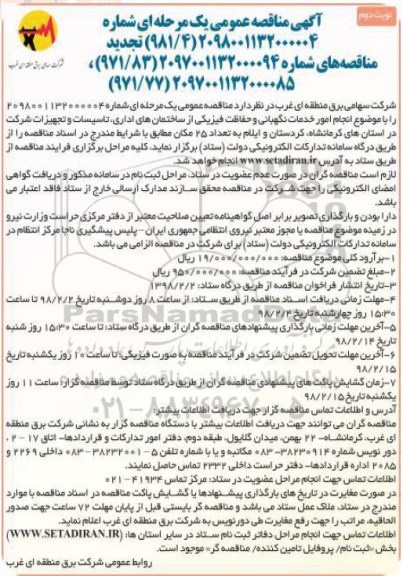 نوبت دوم
آگهی مناقصه عمومی یک مرحله ای شماره
۲۰۹۸۰۰۱۱۳۲۰۰۰۰۰۴ (۹۸۱/۴) تجدید
مناقصه‌های شماره ۲۰۹۷۰۰۱۱۳۲۰۰۰۰۹۴ (۹۷۱/۸۳) ،
۲۰۹۷۰۰۱۱۳۲۰۰۰۰۸۵ (۹۷۱/۷۷)
شرکت سهامی برق منطقه ای غرب
شرکت سهامی برق منطقه ای غرب در نظر دارد مناقصه عمومی یک مرحله ای شماره ۲۰۹۸۰۰۱۱۳۲۰۰۰۰۰۴
را با موضوع انجام امور خدمات نگهبانی و حفاظت فیزیکی از ساختمان های اداری، تاسیسات و تجهیزات شرکت
در استان های کرمانشاه، کردستان و ایلام به تعداد ۲۵ مکان مطابق با شرایط مندرج در اسناد مناقصه را از
طریق درگاه سامانه تدارکات الکترونیکی دولت (ستاد) برگزار نماید. کلیه مراحل برگزاری فرایند مناقصه از
طریق ستاد به آدرس www.setadiran.ir انجام خواهد شد.
لازم است مناقصه گران در صورت عدم عضویت در ستاد، مراحل ثبت نام در سامانه مذکور و دریافت گواهی
امضای الکترونیکی را جهت شرکت در مناقصه محقق سازند مدارک ارسالی خارج از ستاد فاقد اعتبار می
باشد.
دارا بودن و بارگذاری تصویر برابر اصل گواهینامه تعیین صلاحیت معتبر از دفتر مرکزی حراست وزارت نیرو
در زمینه موضوع مناقصه یا مجوز معتبر نیروی انتظامی جمهوری ایران - پلیس پیشگیری ناجا مرکز انتظام در
سامانه تدارکات الکترونیکی دولت (ستاد) برای شرکت در مناقصه الزامی می باشد.
۱-برآورد کلی موضوع مناقصه: ۱۹/۰۰۰/۰۰۰/۰۰۰ ریال
۲-مبلغ تضمین شرکت در فرآیند مناقصه: ۹۵۰/۰۰۰/۰۰۰ ریال
۳-تاریخ انتشار فراخوان مناقصه از طریق درگاه ستاد: ۱۳۹۸/۲/۲
۴-مهلت زمانی دریافت اسناد مناقصه از طریق ستاد: از ساعت ۸ روز دوشنبه تاریخ ۹۸/۲/۲ تا ساعت
۱۵:۳۰ روز چهارشنبه تاریخ ۹۸/۲/۴
۵-آخرین مهلت زمانی بارگذاری پیشنهادهای مناقصه گران از طریق درگاه ستاد: تا ساعت ۱۵:۳۰ روز شنبه
تاریخ ۹۸/۲/۱۴
۶-آخرین مهلت تحویل تضمین شرکت در فرآیند مناقصه به صورت فیزیکی: تا ساعت ۱۰ روز یکشنبه تاریخ
۹۸/۲/۱۵
۷-زمان گشایش پاکت های پیشنهادی مناقصه گران از طریق درگاه ستاد توسط مناقصه گزار: ساعت ۱۱ روز
یکشنبه تاریخ ۹۸/۲/۱۵
آدرس و اطلاعات تماس مناقصه گزار جهت دریافت اطلاعات بیشتر:
مناقصه گران می توانند جهت دریافت اطلاعات بیشتر با دستگاه مناقصه گزار به نشانی شرکت برق منطقه
ای غرب، کرمانشاه- ۲۲ بهمن، میدان گلایول، طبقه دوم، دفتر امور تدارکات و قراردادها- اتاق ۱۷ - ۲ ،
دور نویس شماره ۳۸۲۳۰۹۱۴-۰۸۳ مکاتبه و یا با شماره تلفن ۵ - ۳۸۲۳۲۰۰۱-۰۸۳ داخلی ۲۲۶۹ و
۲۰۸۵ اداره قراردادها- دفتر حراست داخلی ۲۳۳۲ تماس حاصل نمایند.
اطلاعات تماس جهت انجام مراحل عضویت در ستاد: مرکز تماس ۴۱۹۳۴-۰۲۱
در صورت مغایرت در تاریخ های بارگذاری پیشنهادها یا گشایش پاکت مناقصه در اسناد مناقصه با موارد
مندرج در ستاد، ملاک عمل ستاد می باشد و مناقصه گر بایستی قبل از پایان مهلت ۷۲ ساعت جهت صدور
الحاقیه، مراتب را جهت رفع مغایرت طی دورنویس به شرکت برق منطقه ای غرب اعلام نماید.
اطلاعات تماس جهت انجام مراحل دفاتر ثبت نام ستاد در سایر استان ها: (WWW.SETADIRAN.IR)
بخش «ثبت نام/ پروفایل تامین کننده/ مناقصه گر» موجود است.
روابط عمومی شرکت برق منطقه ای غرب
ParsNamadData
۰۲۱-۸۸۳۴۹۶۷۰